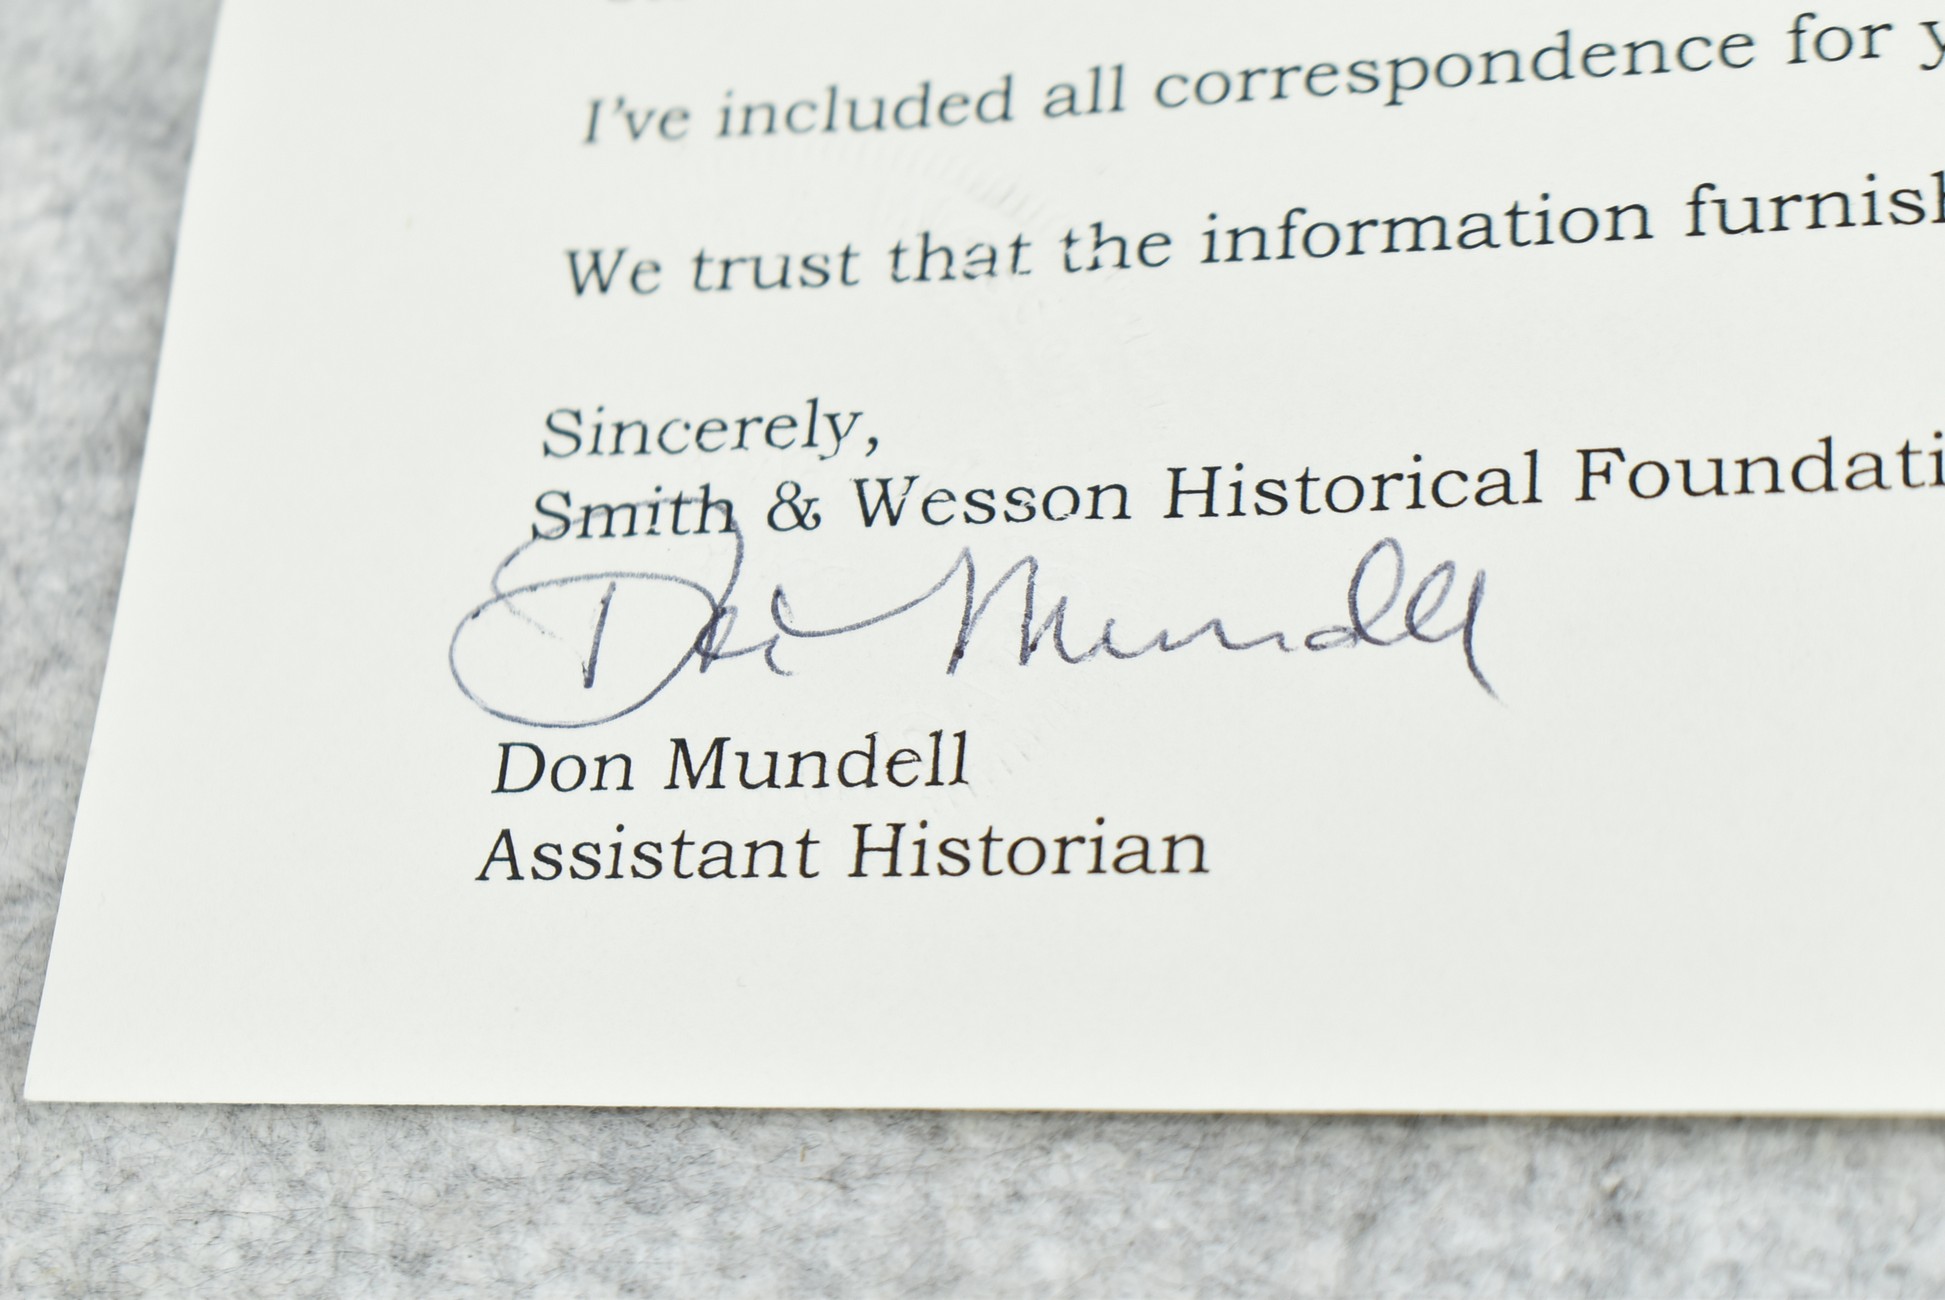 I've included all correspondence for
We trust that the information furnish
Sincerely,
Smith & Wesson Historical Foundati
Don Mundell
Don Mundell
Assistant Historian